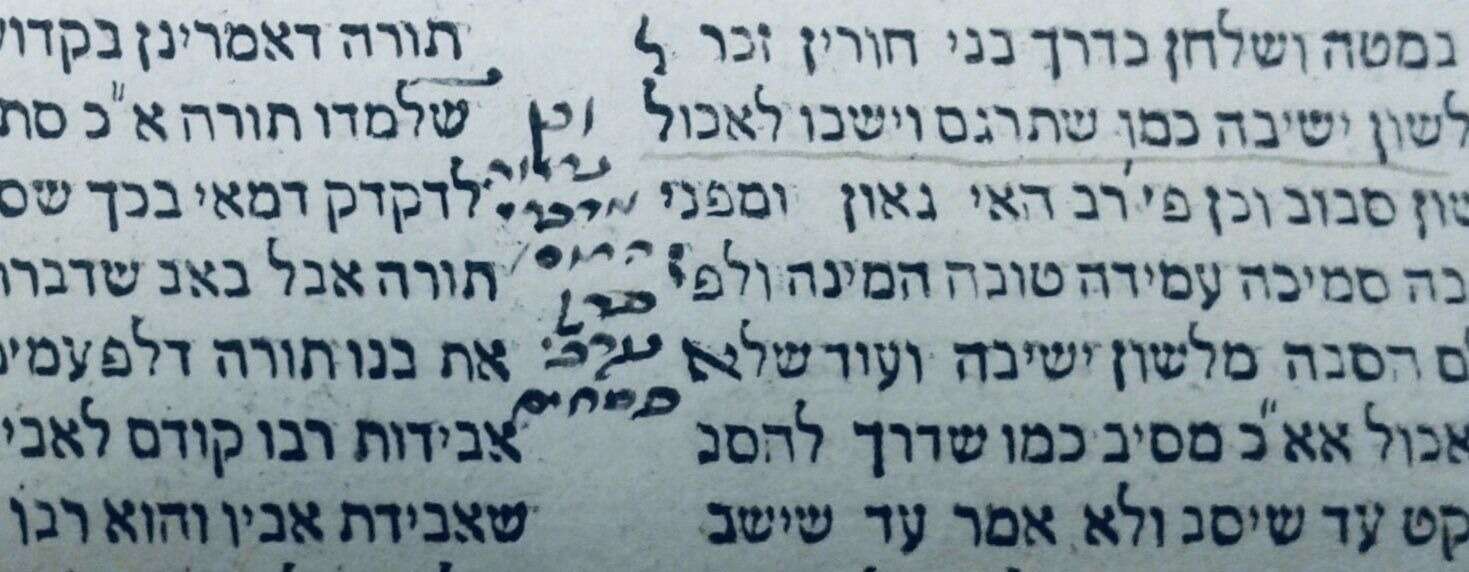 במטה ושלחן כדרך בני חורין זכר ל
לשון ישיבה כמו שתרגם וישבו לאכול
סבוב וכן פי' רב האי גאון ומפני
סמיכה עמידה טובה המינה ולפי
הסבה מלשון ישיבה ועוד שלא
אכול אא"כ מסיב כמו שדרך להסב
עד שיסב ולא אמר עד שישב
וכן
נראה
מדברי
פרק
ערבי
פסחים
תורה דאמרינן
שלמדו תורה א"כ
לדקדק דמאי בכך
תורה אבל באב
את בנו תורה
אבידות רבו קודם
שאבידת אביו והוא רבו